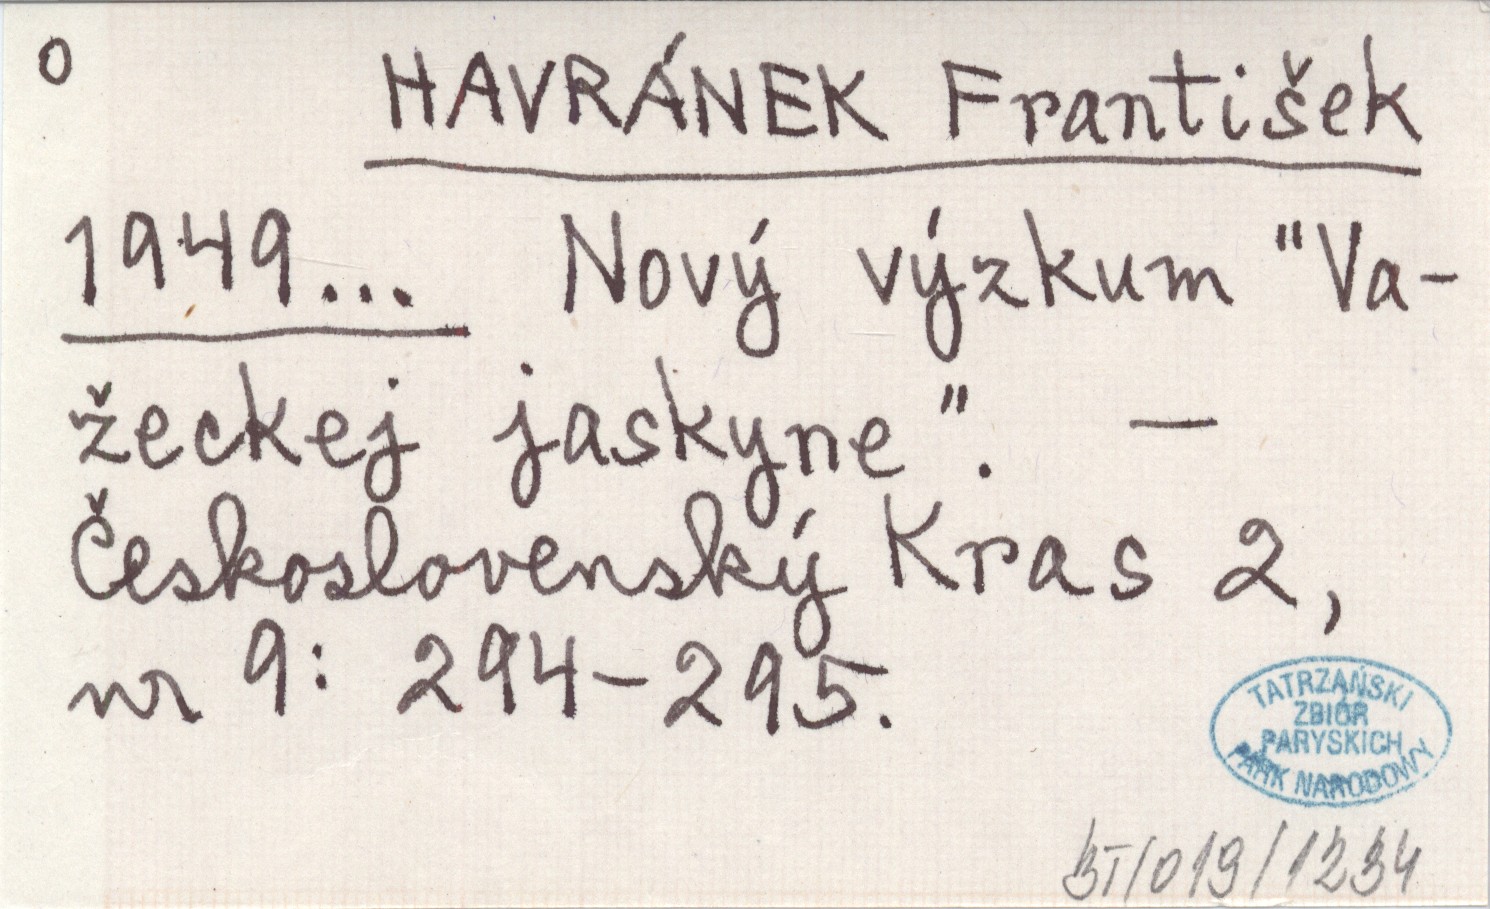 o
HAVRÁNEK František
1949... Nový výzkum "Va-
žeckej jaskyne". —
Československý Kras 2,
nr 9: 294-295.
TATRZAŃSKI
ZBIÓR
PARYSKICH
PARK NARODOWY
BT/019/1234